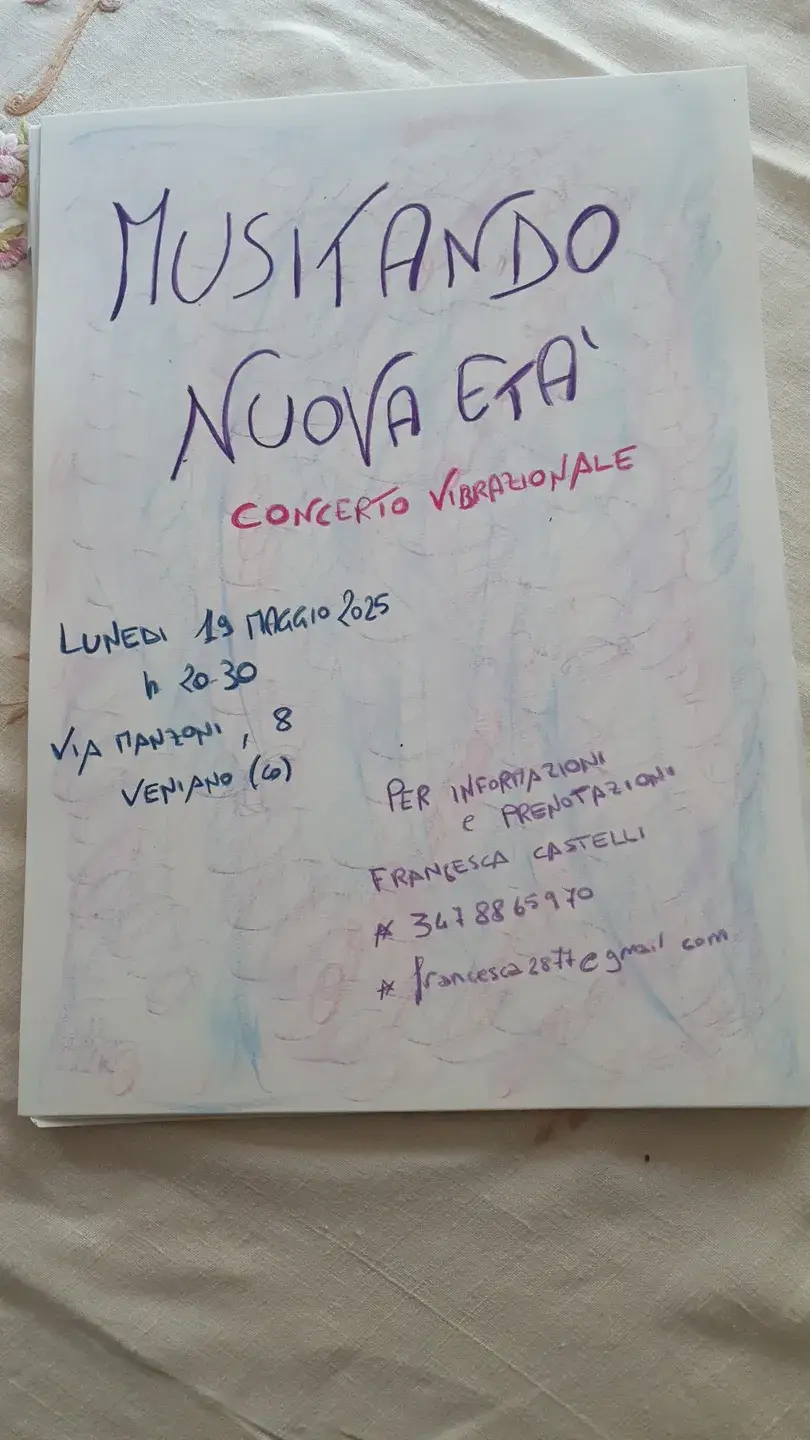 MUSITANDO
NUOVA ETA'
CONCERTO VIBRAZIONALE
LUNEDI 19 MAGGIO 2025
h 20.30
VIA MANZONI, 8
VENIANO (CO)
PER INFORMAZIONI
e PRENOTAZIONI
FRANCESCA CASTELLI
* 347 8865970
* francesca2877@gmail.com